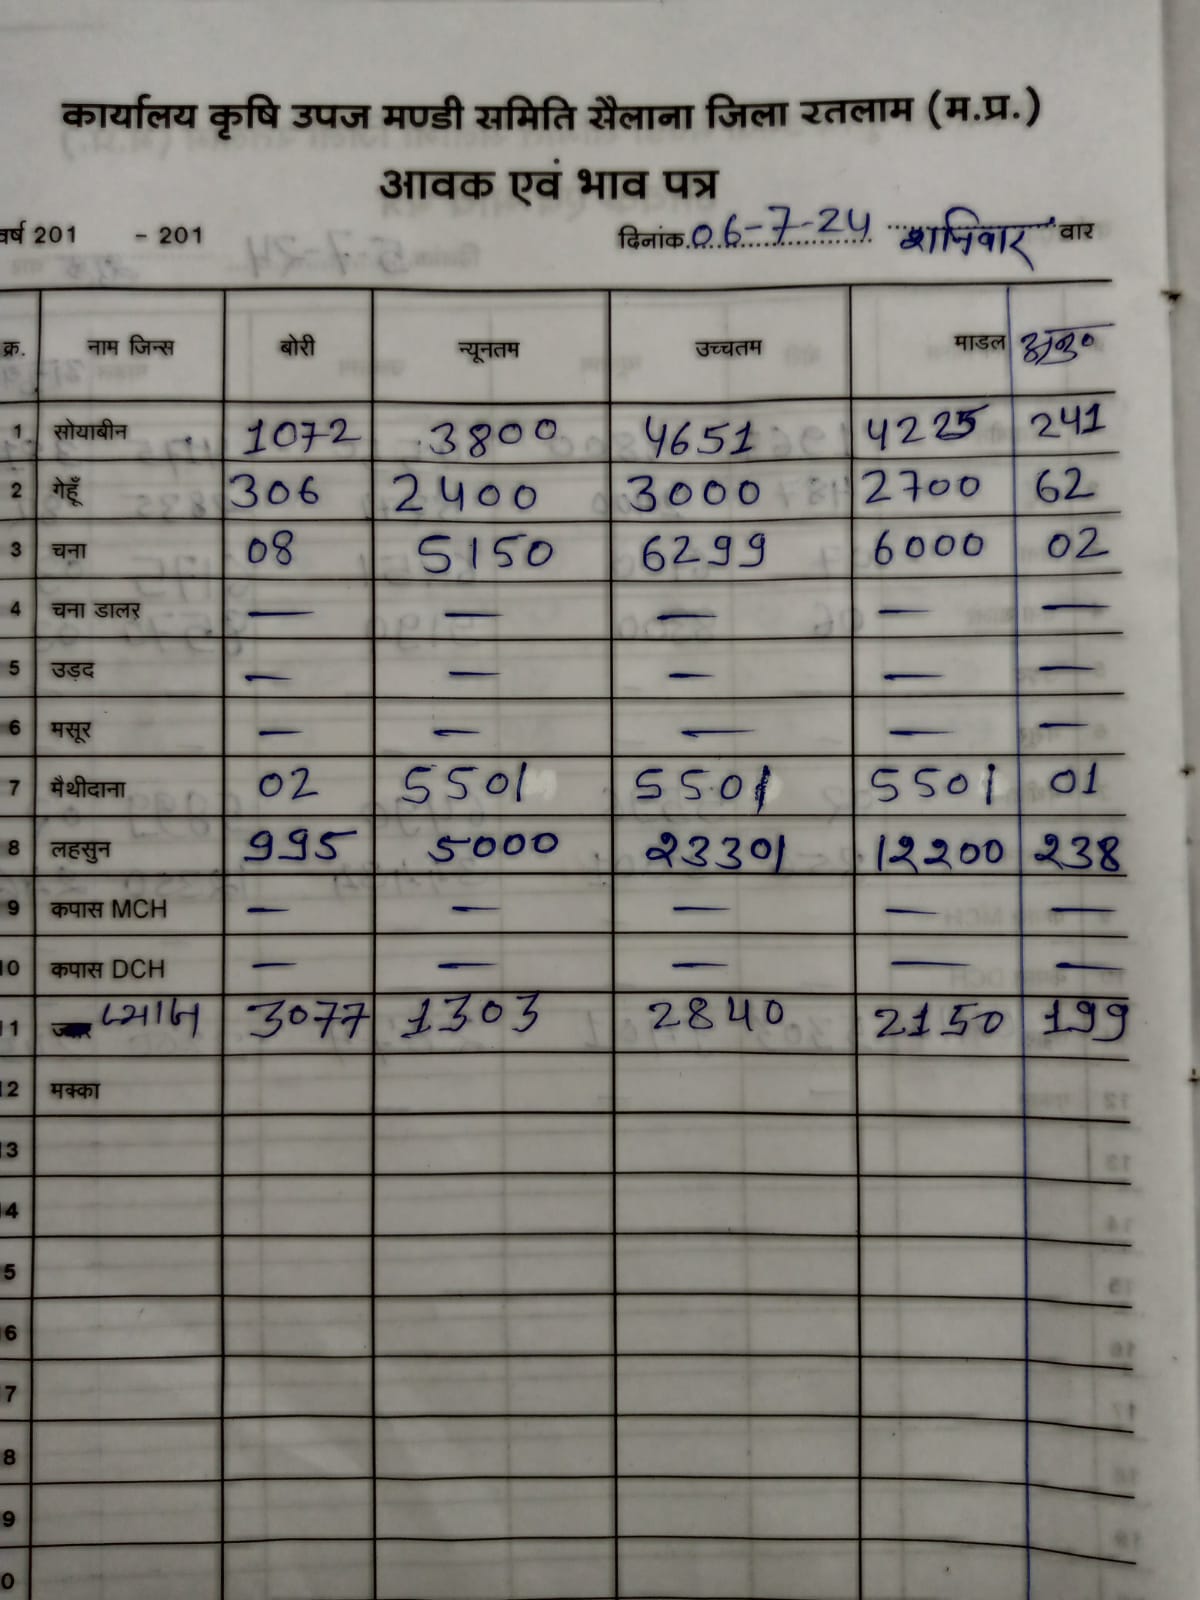 कार्यालय कृषि उपज मण्डी समिति सैलाना जिला रतलाम (म.प्र.)
आवक एवं भाव पत्र
वर्ष 201 - 201 दिनांक 06-7-24 शनिवार वार
क्र. नाम जिन्स बोरी न्यूनतम उच्चतम माडल
1 सोयाबीन 1072 3800 4651 4225 241
2 गेहूँ 306 2400 3000 2700 62
3 चना 08 5150 6299 6000 02
4 चना डालर — — — — —
5 उड़द — — — — —
6 मसूर — — — — —
7 मैथीदाना 02 5501 5501 5501 01
8 लहसुन 995 5000 23301 12200 238
9 कपास MCH — — — — —
10 कपास DCH — — — — —
11 प्याज 3077 1303 2840 2150 199
12 मक्का
13
14
5
6
7
8
9
0